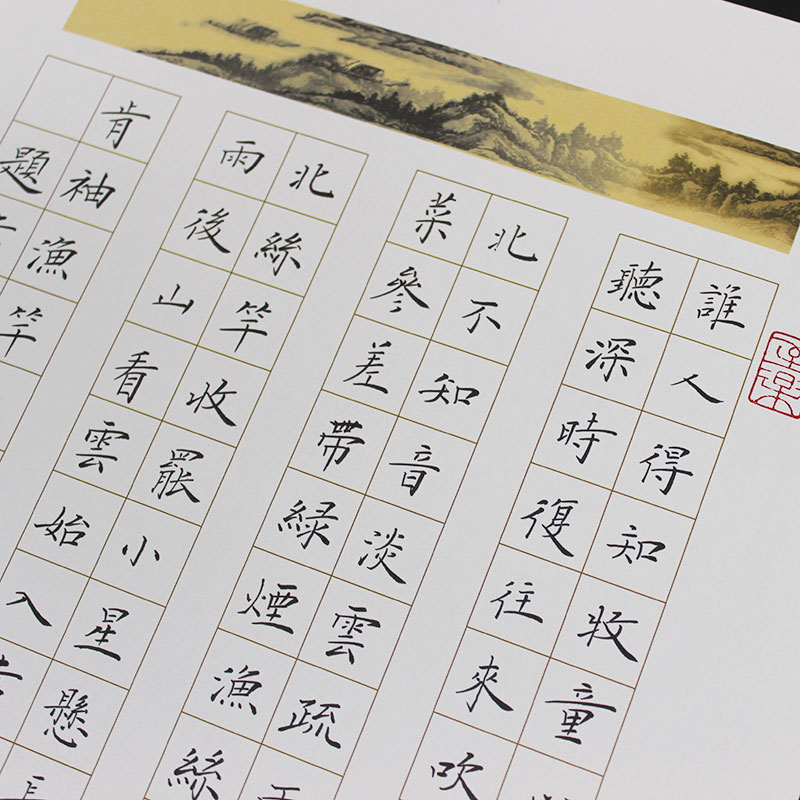 誰人得知牧童
聽深時復往來吹
北不知音淡雲疏
菜參差帶緑煙漁絲
北絲竿收罷小星懸
雨後山看雲始入
肯袖漁竿
題